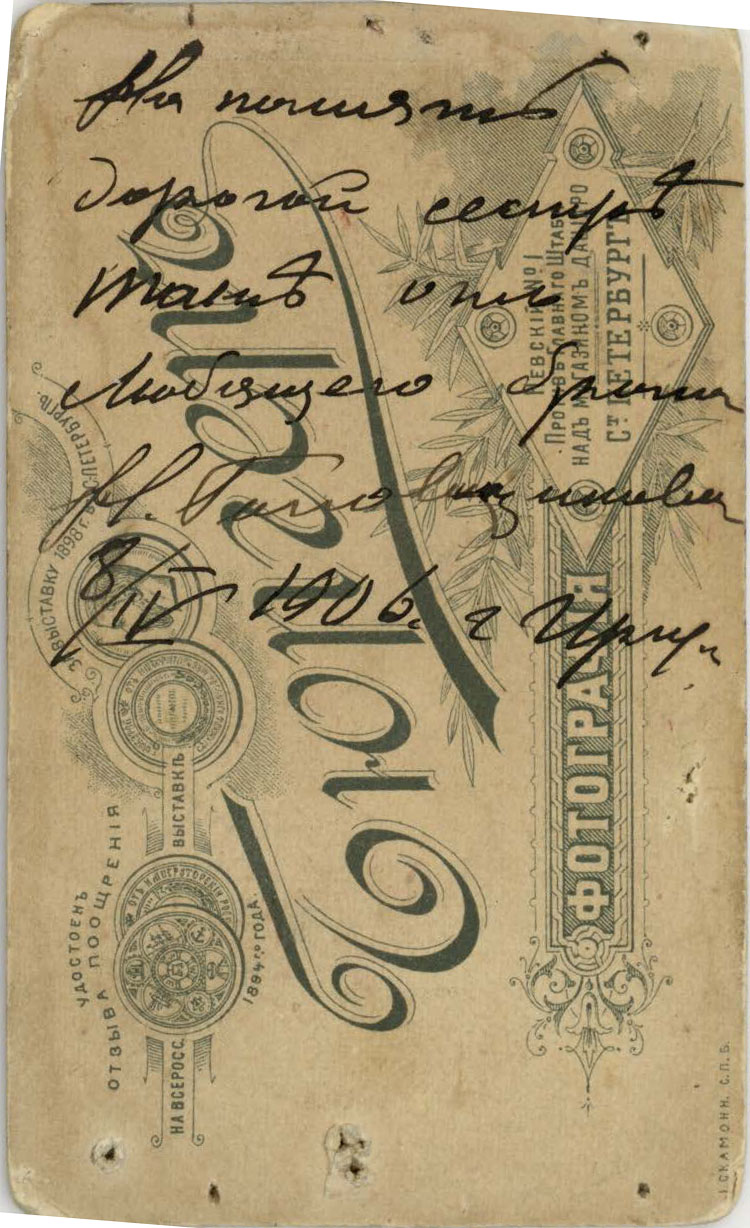 На память
дорогой сестрѣ
Танѣ отъ
Любящего брата
8/IV 1906 г
Юргенсъ
ФОТОГРАФІЯ
НЕВСКІЙ № 1
ПРОТИВЪ ГЛАВНАГО ШТАБА
НАДЪ МАГАЗИНОМЪ ДАЦІАРО
СТ ПЕТЕРБУРГЪ
ЗА ВЫСТАВКУ 1898 Г. В С. ПЕТЕРБУРГѢ.
УДОСТОЕНЪ
ОТЗЫВА ПООЩРЕНІЯ
НА ВСЕРОСС. ВЫСТАВКѢ
1894 ГО ГОДА.
І. СКАМОНИ. С.П.Б.